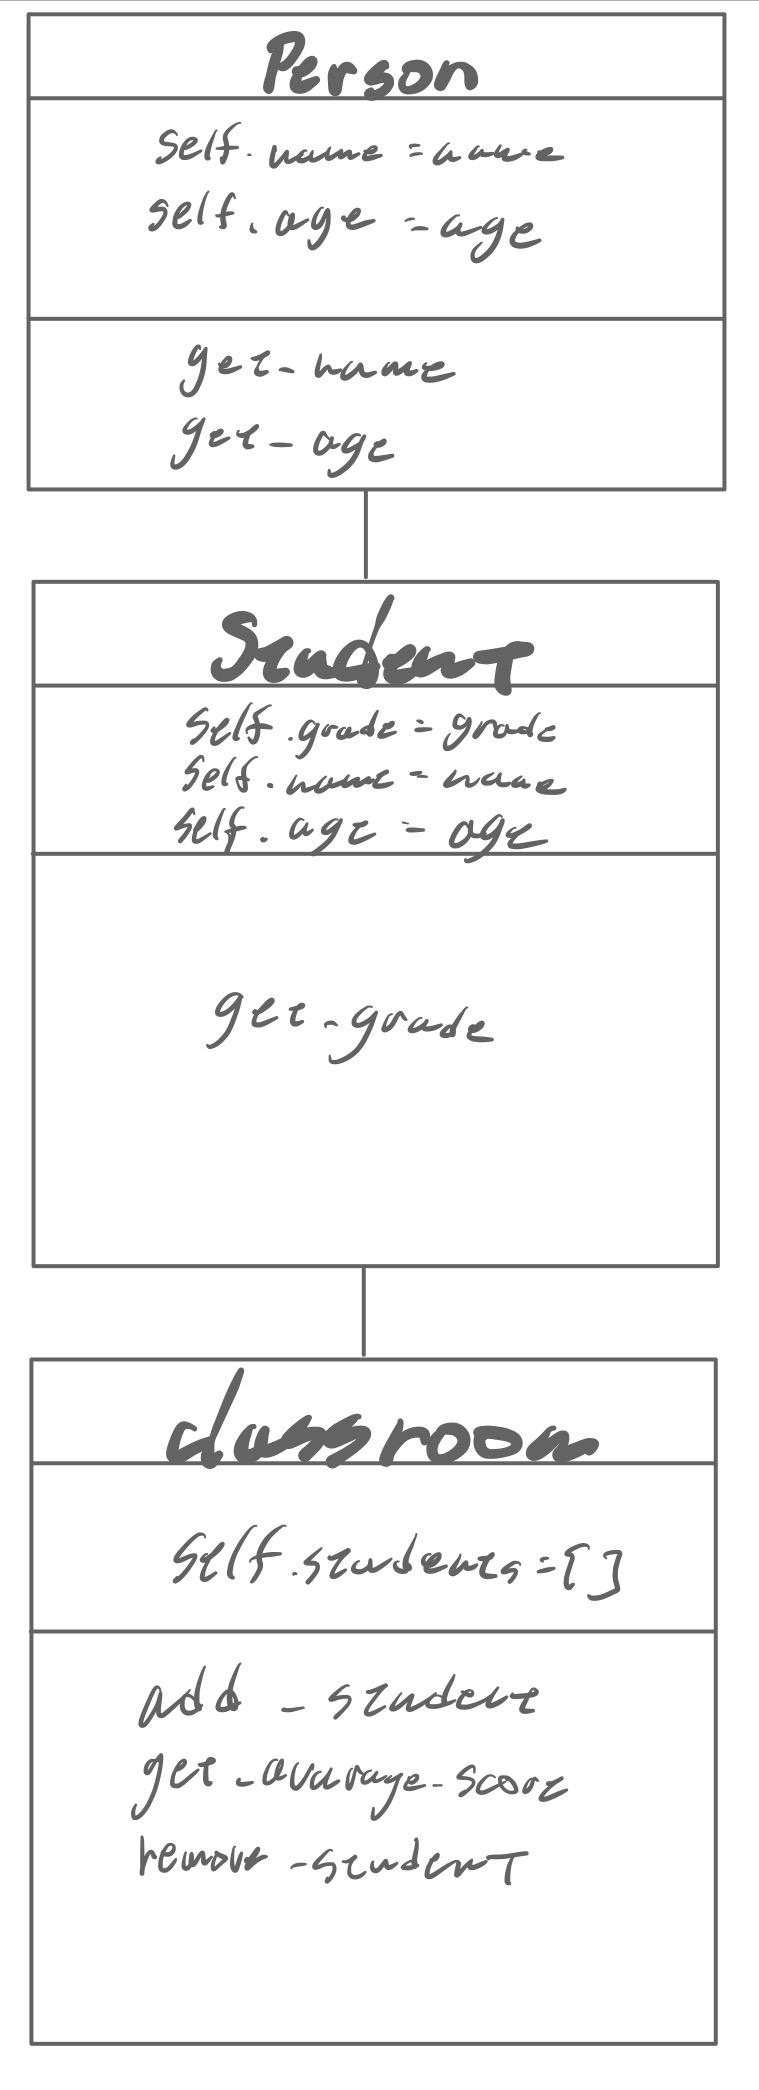 Person
self.name = name
self.age = age
get_name
get_age
Student
self.grade = grade
self.name = name
self.age = age
get_grade
classroom
self.students = []
add_student
get_avarage_score
remove_student